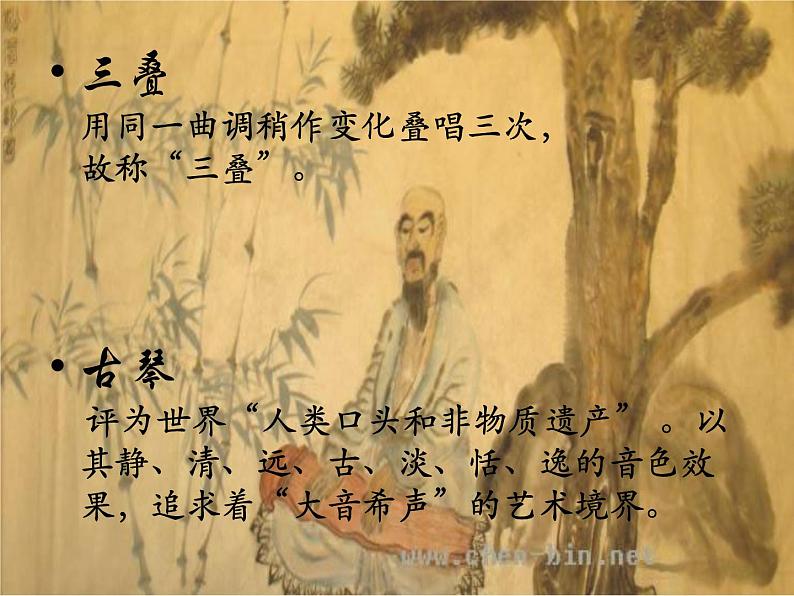 • 三叠
用同一曲调稍作变化叠唱三次，
故称“三叠”。
• 古琴
评为世界“人类口头和非物质遗产” 。以
其静、清、远、古、淡、恬、逸的音色效
果，追求着“大音希声”的艺术境界。
www.chen-bin.net